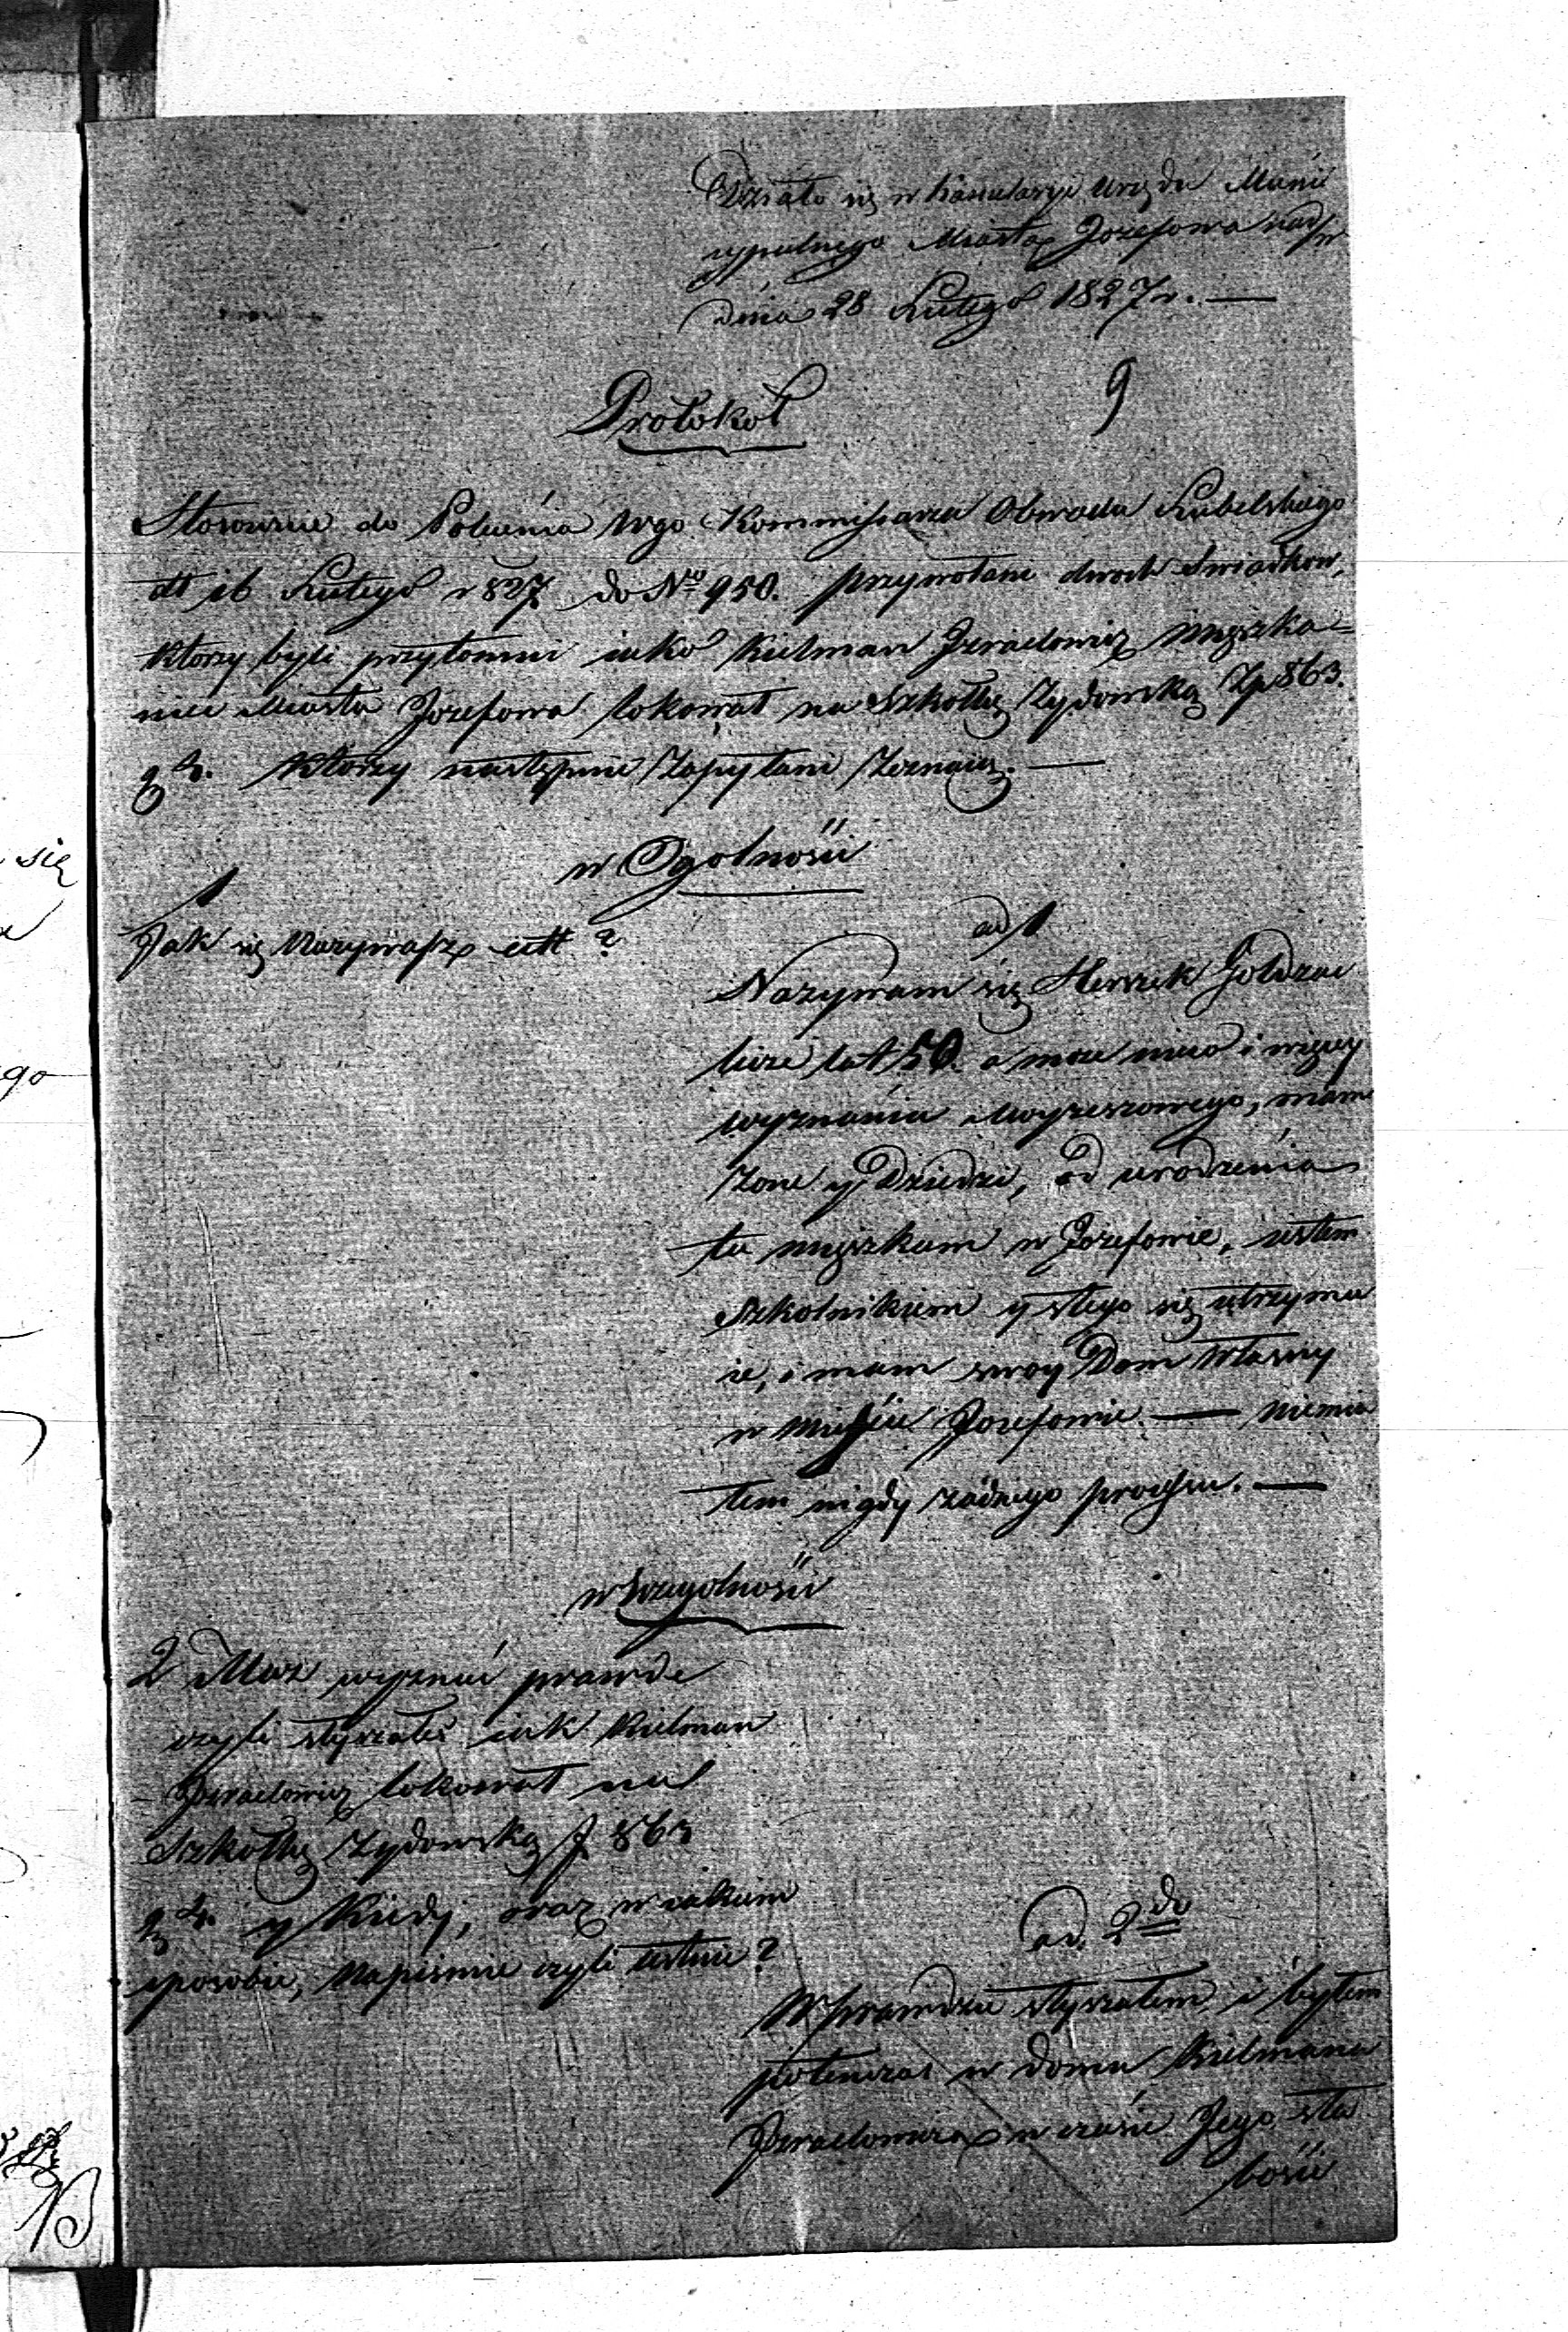 Działo się w Kancelaryi Urzędu Muni
cypalnego Miasta Jozefowa nad W
dnia 28 Lutego 1827 r. —
9
Protokoł
Stosownie do Polecenia Wgo Kommissarza Obwodu Lubelskiego
dt 16 Lutego 1827 do No 950. przywołani dwoch Swiadkow,
ktorzy byli przytomni iako Kielman Izraelowicz mięszka=
niec Miasta Jozefowa lokował na Szkołkę Zydowską Zp 863.
g 2. Ktorzy następnie Zapytani Zeznaią. —
w Ogolności
1
Jak się Nazywasz ett ?
ad 1
Nazywam się Herszek Goldzac
licze lat 50. a moze nieco i więcey
wyznania Moyzeszowego, mam
Zone y Dziedzi, od urodzenia
tu mięszkam w Jozefowie, iestem
Szkolnikiem y stego się utrzymu
ie, i mam swoy Dom Własny
w Mieście Jozefowie. — Niemia
łem nigdy zadnego processu. —
w Szczegolności
2 Masz wyznać prawde
czyli słyszałes iak Kielman
Izraelowicz lokował na
Szkołkę Zydowską f 863
g 2. y Kiedy, oraz w iakiem
sposobie, Napismie czyli ustnie ?
ad. 2do
Wprawdzie słyszałem i byłem
potenczas w domu Kielmana
Izraelowicza w czasie Jego sła
bości
się
go